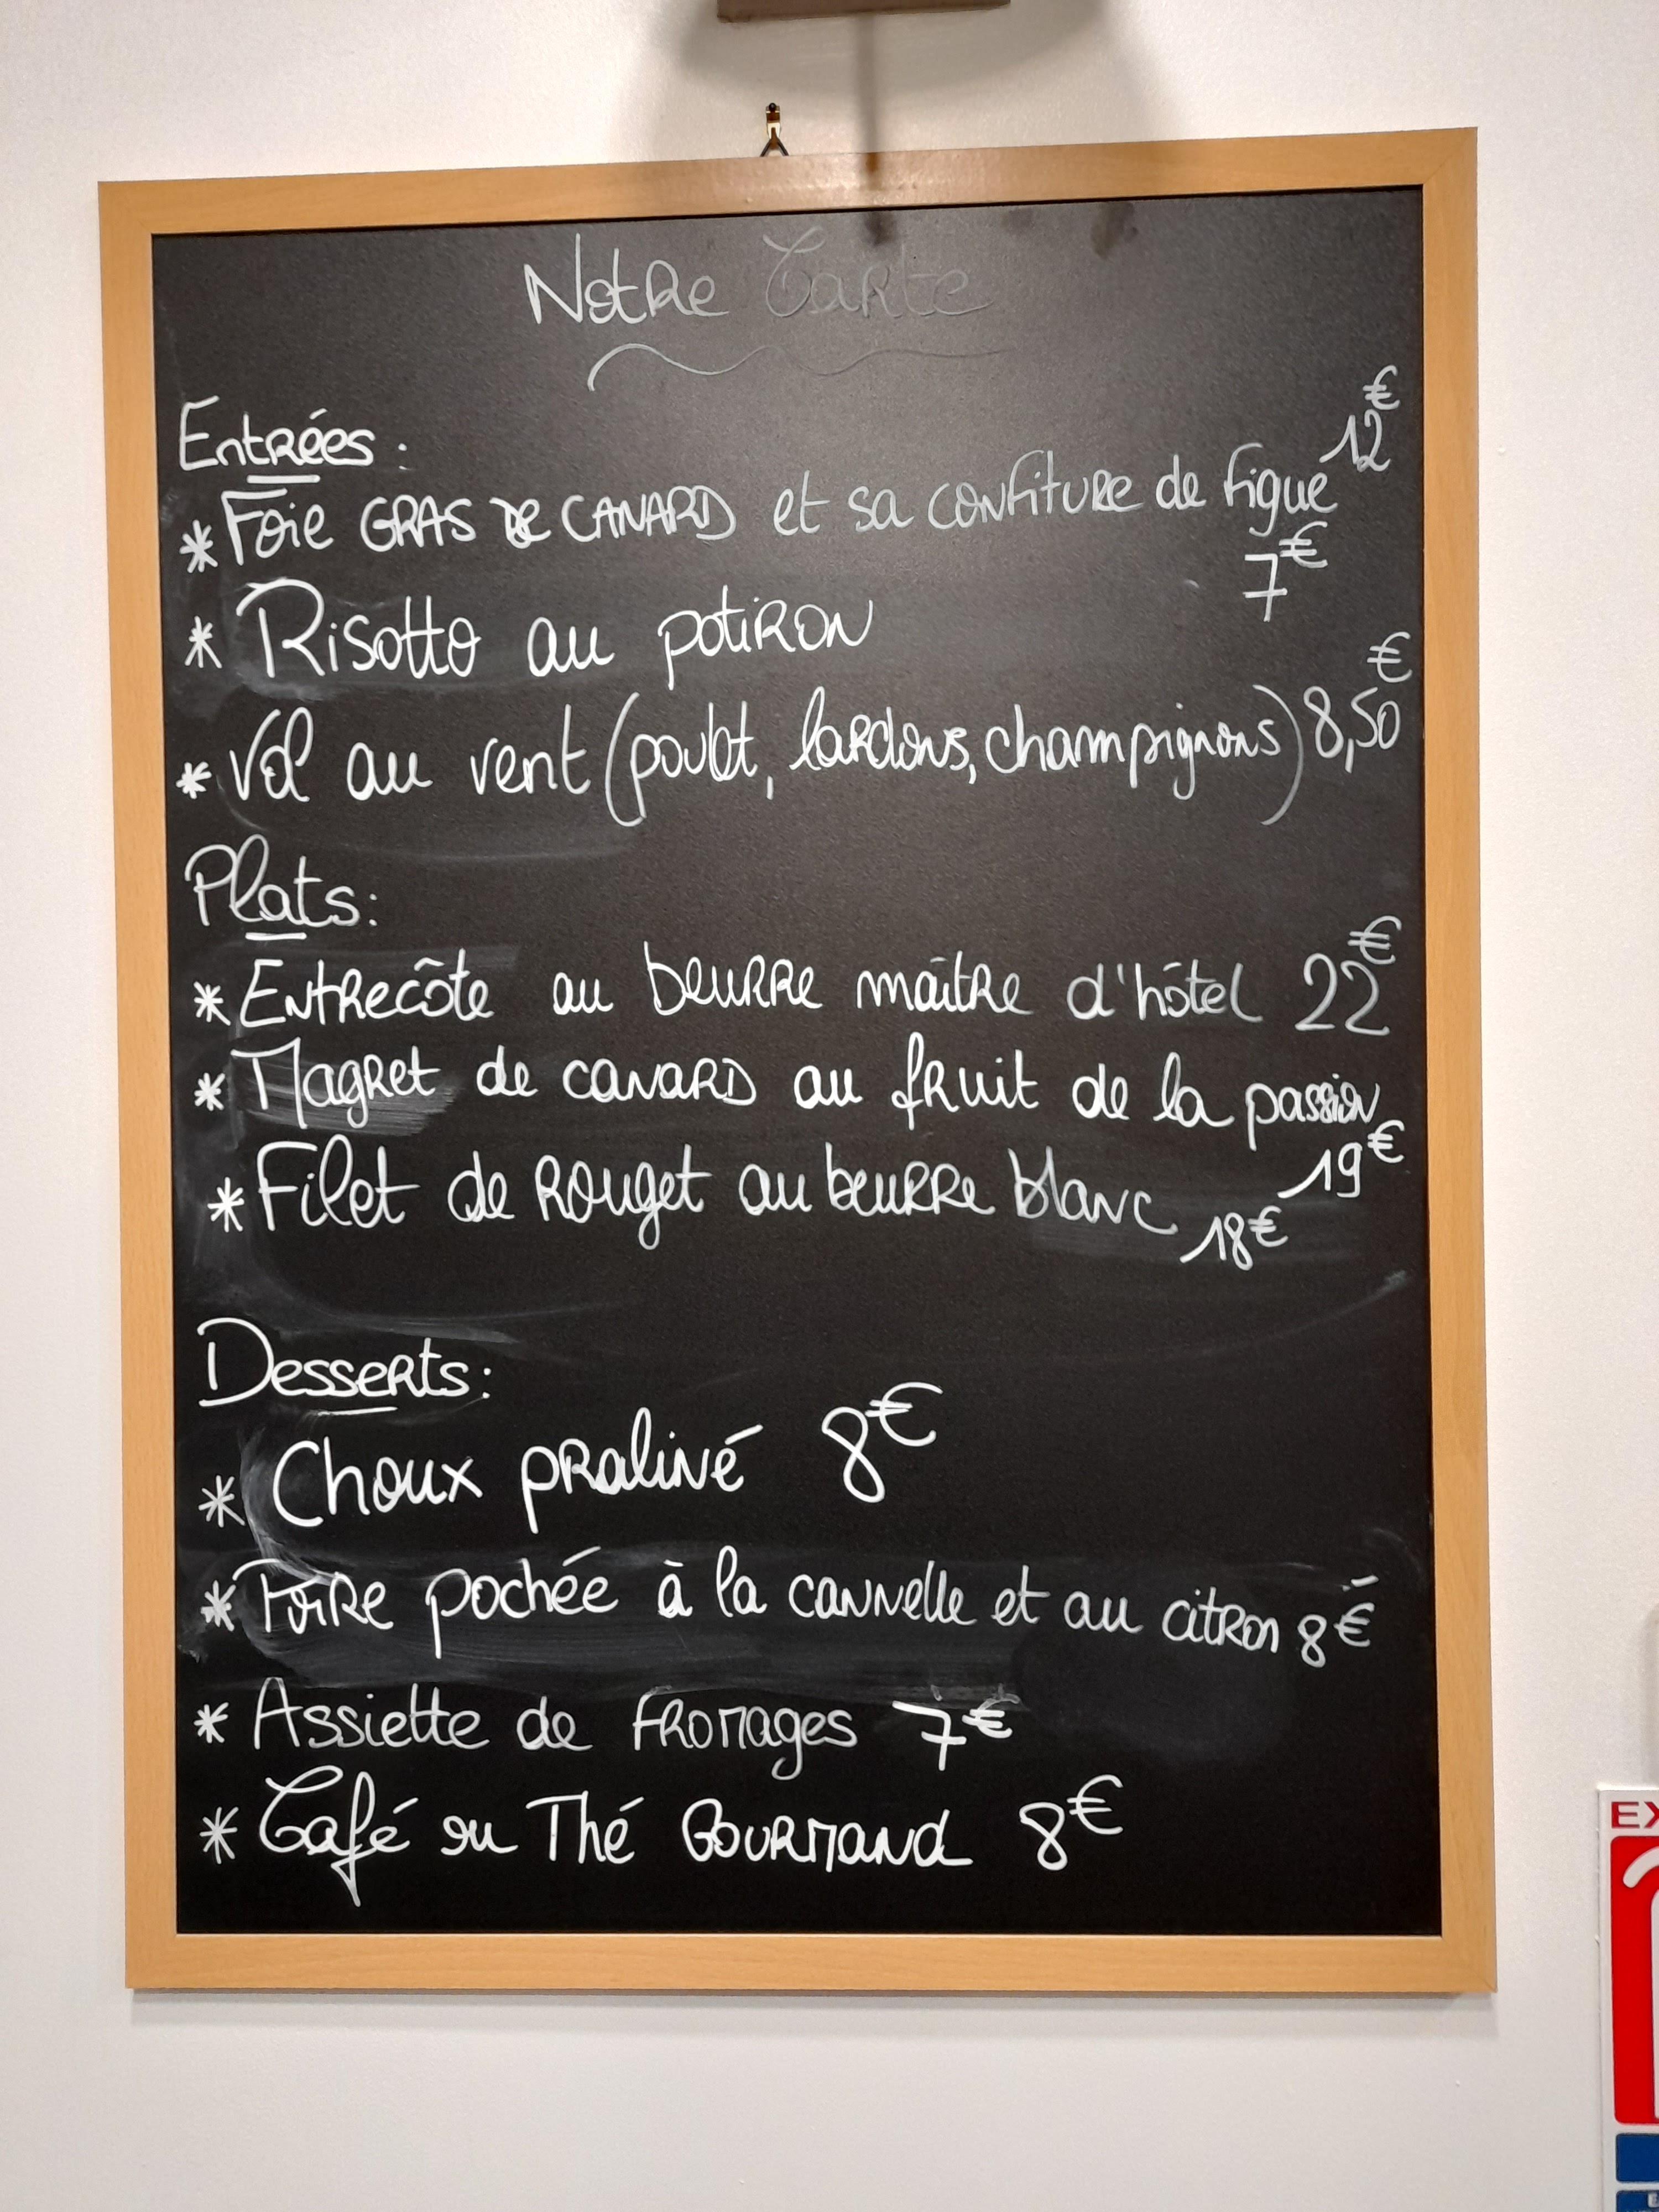 Notre Carte
Entrées :
* Foie GRAS de CANARD et sa confiture de figue 12€
* Risotto au potiron 7€
* Vol au vent (poulet, lardons, champignons) 8,50€
Plats :
* Entrecôte au beurre maître d'hôtel 22€
* Magret de canard au fruit de la passion 19€
* Filet de rouget au beurre blanc 18€
Desserts :
* Choux praliné 8€
* Poire pochée à la cannelle et au citron 8€
* Assiette de fromages 7€
* Café ou Thé Gourmand 8€
EX